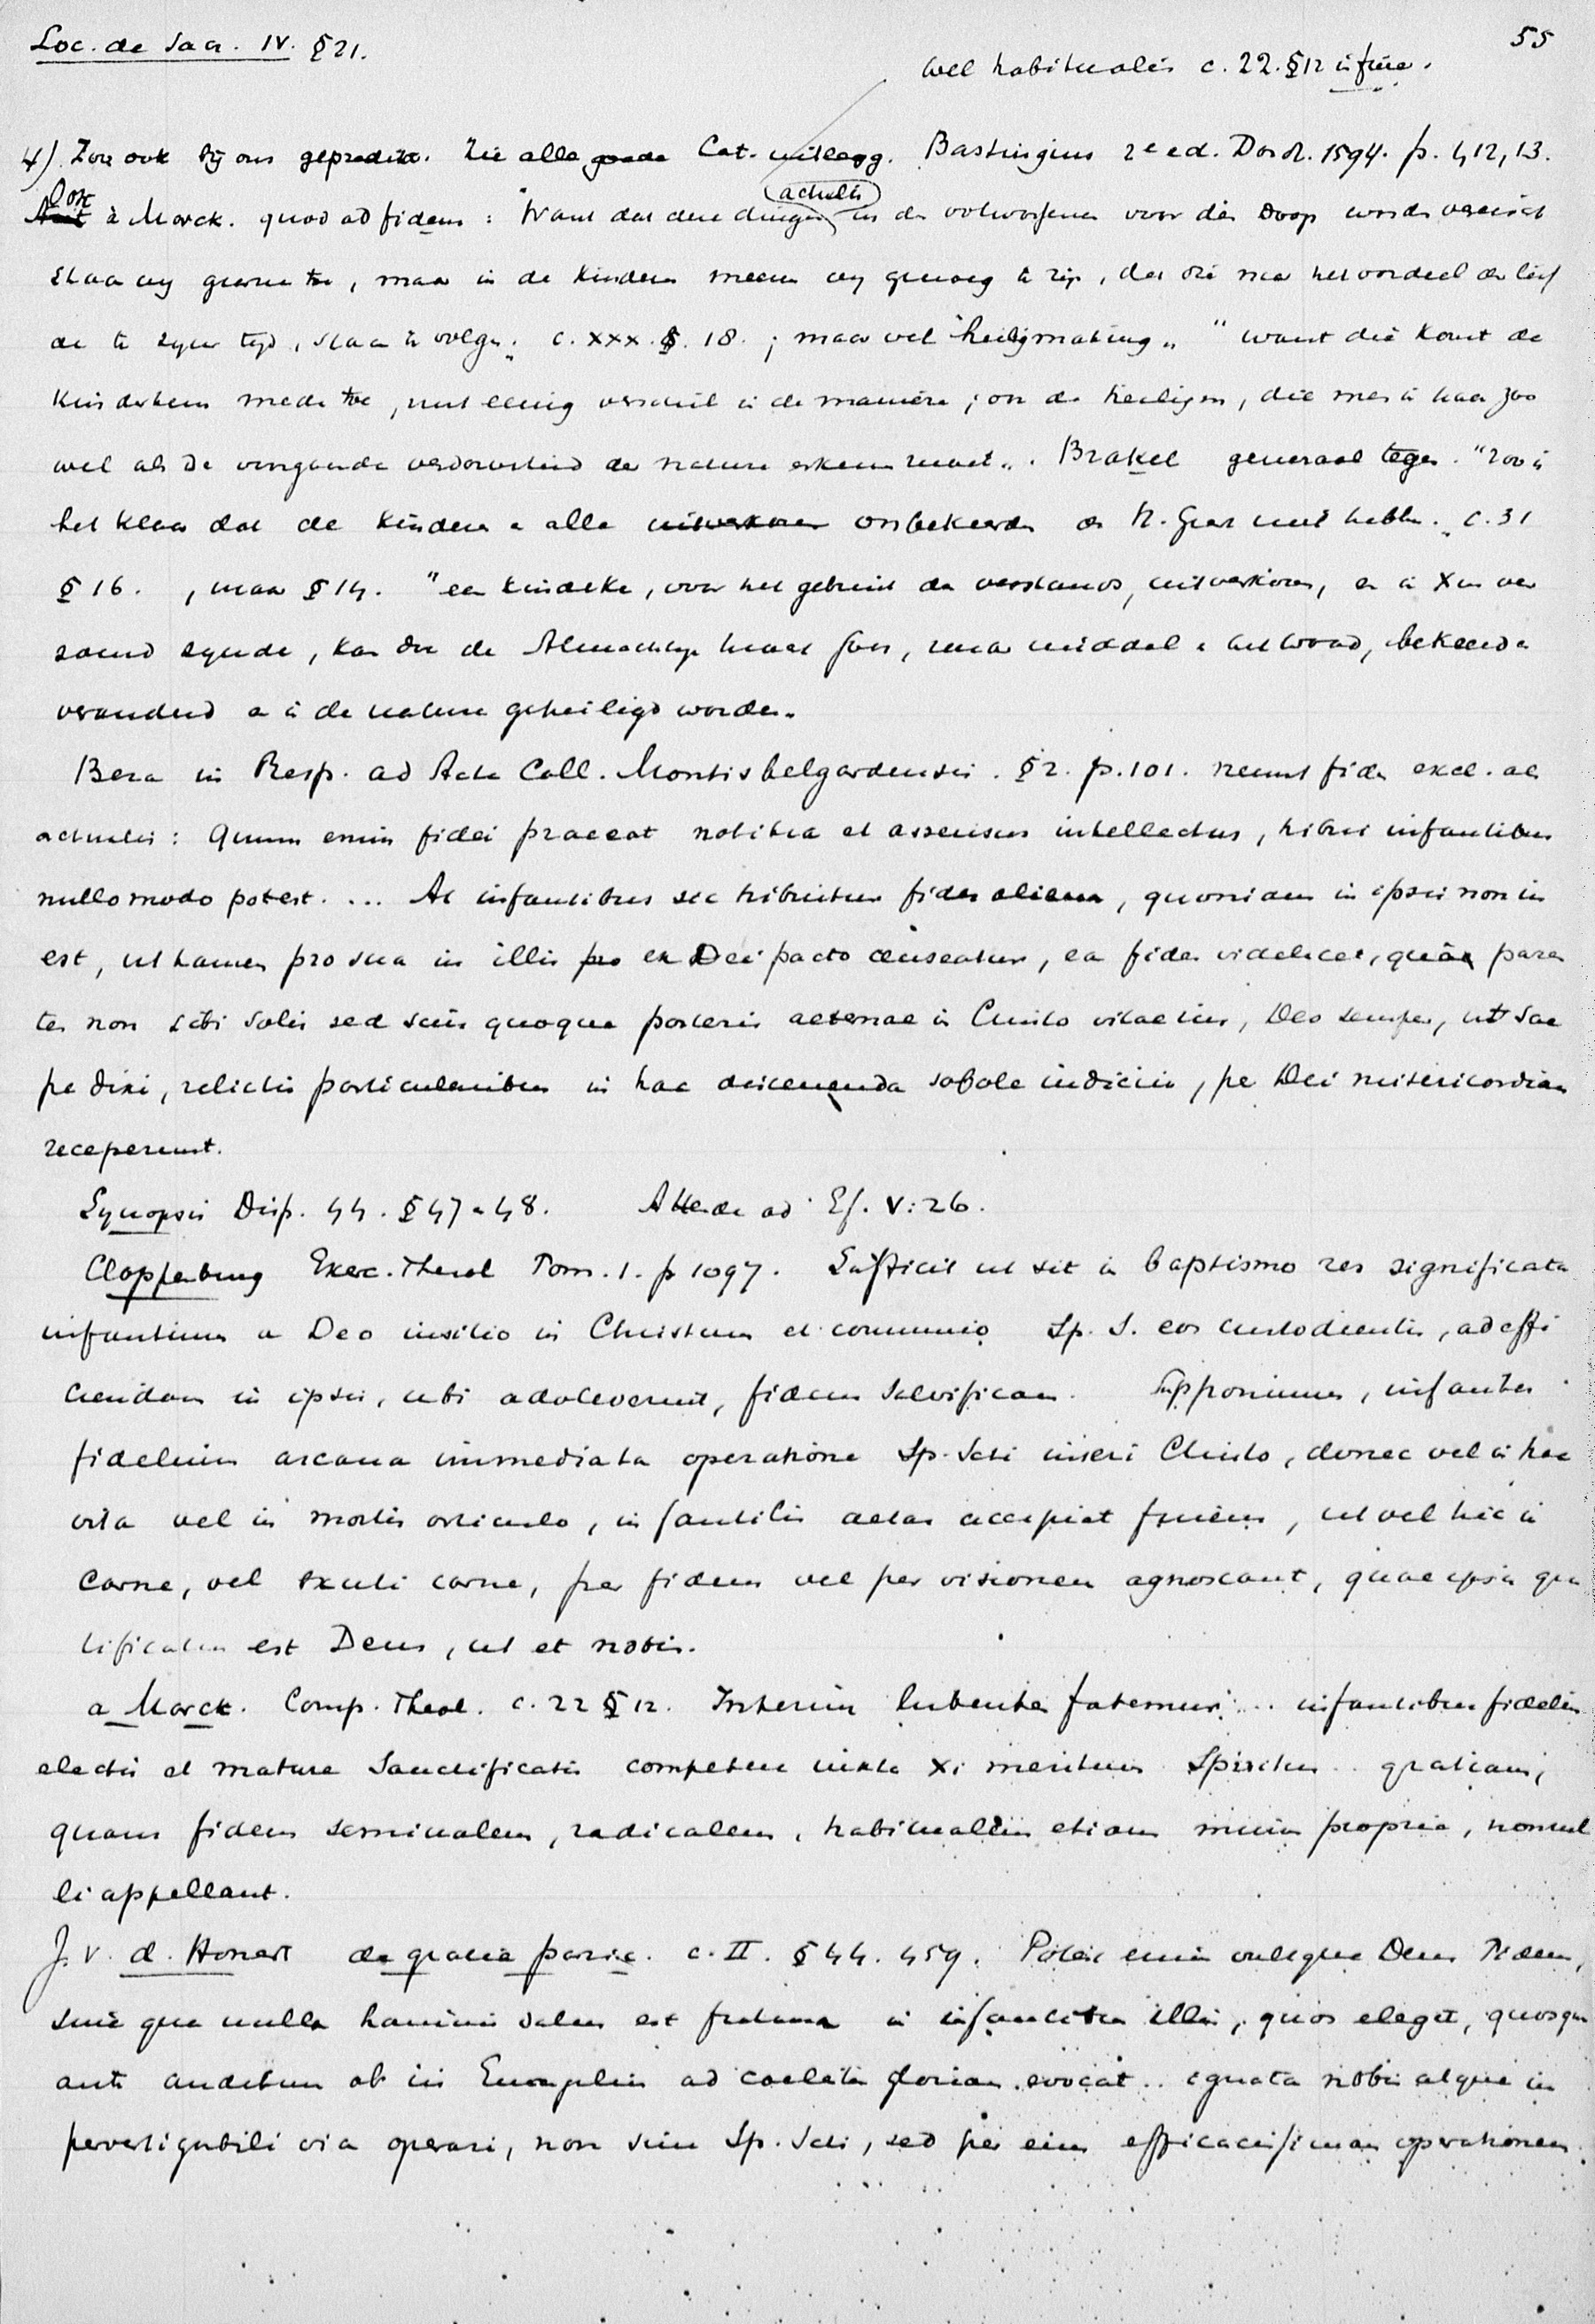 Loc. de Sacr. IV. § 21.
55
wel habitualis c. 22. § 12 in fine.
4) Zoo ook bij ons gepredikt. Zie alle goede Cat. uitlegg. Bastingius 2e ed. Dord. 1594. p. 412, 13.
Ook à Marck. quod ad fidem: "Want dat deze dingen (actueele) in de volwassenen voor den Doop worden vereischt
staan wy geerne toe, maar in de kinderen meenen wy genoeg te zijn, dat die na het voordeel der
de te zyner tyd, staan te volgen". c. XXX. §. 18.; maar wel "heiligmaking" "want die komt de
kinderkens mede toe, met eenig verschil in de maniere; on de heiligen, die men in haar zoo
wel als de voorgaande verdorvenheid der nature erkennen moet". Brakel generaal tegen. "Zoo is
het klaar dat de kinderen en alle uitverkoren onbekeerden den H. Geest niet hebben". c. 31
§ 16. , maar § 14. "een kindeke, voor het gebruik des verstands, uitverkoren, en in Xus ver
zoend zynde, kan door de Almachtige hand Gods, zonder middel van het woord, bekeerd en
veranderd en in de nature geheiligd worden.
Beza in Resp. ad Acta Coll. Montisbelgardensis. § 2. p. 101. neemt fides excl. als
actualis: Quum enim fidei praeeat notitia et assensus intellectus, tribui infantibus
nullo modo potest. ... At infantibus sic tribuitur fides aliena, quoniam in ipsis non in
est, ut tamen pro sua in illis pro ex Dei pacto censeatur, ea fides videlicet, qua paren
tes non sibi solis sed suis quoque posteris aeternae in Christo vitae ius, Deo semper, ut sae
pe dixi, relictis particularibus in hac discernenda sobole iudiciis, per Dei misericordiam
receperunt.
Synopsis Disp. 44. § 47 en 48. Attende ad Ef. V: 26.
Cloppenburg Exerc. Theol Tom. 1. p 1097. Sufficit ut sit in baptismo res significata
infantium a Deo insitio in Christum et communio Sp. S. eos custodientis, ad effi
ciendam in ipsis, ubi adoleverint, fidem salvificam. Supponimus, infantes
fidelium arcana immediata operatione Sp. Scti inseri Christo, donec vel in hac
vita vel in mortis articulo, infantilis aetas accipiat finem, ut vel hic in
carne, vel exuti carne, per fidem vel per visionem agnoscant, quae ipsis gra
tificatus est Deus, ut et nobis.
a Marck. Comp. Theol. c. 22 § 12. Interim lubenter fatemur ... infantibus fidelium
electis et mature sanctificatis competere iuxta Xi meritum Spiritus .. gratiam,
quam fidem seminalem, radicalem, habitualem etiam minus proprie, nonnul
li appellant.
J. v. d. Honert de gratia partic. c. II. § 44. 459. Potest enim vultque Deus fidem,
sine qua nulla hominis salus est futura in infantibus illis, quos elegit, quosque
ante auditum ab iis Euangelium ad coelestem gloriam evocat .. ignota nobis atque im
pervestigabili via operari, non sine Sp. Scti, sed per eius efficacissimam operationem.